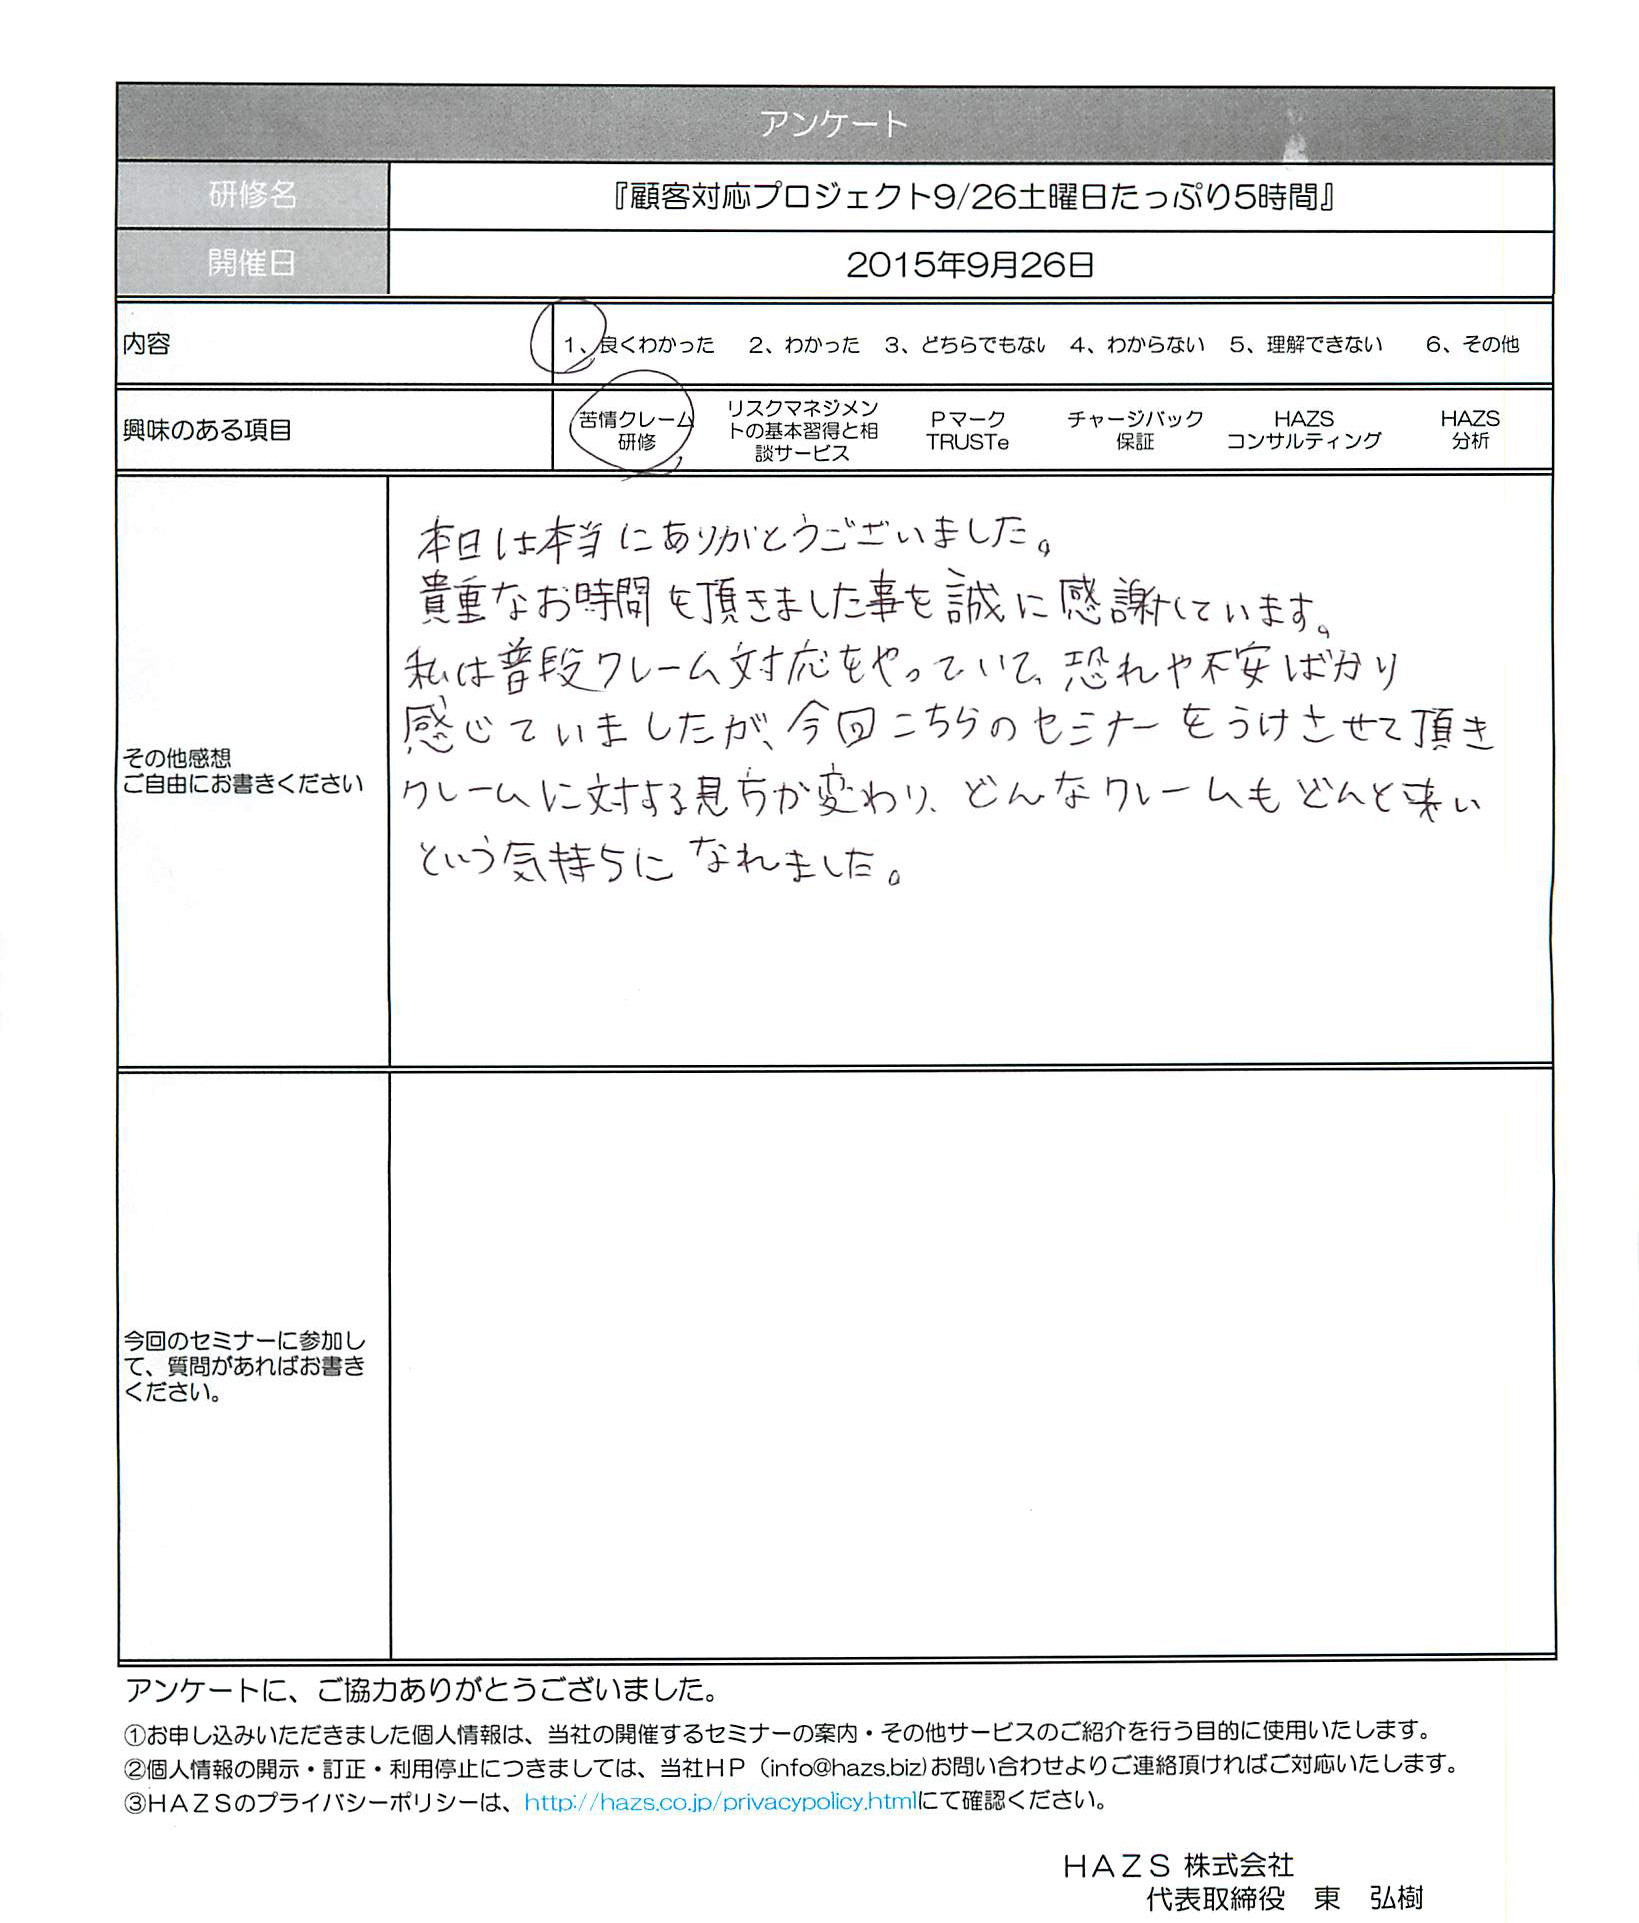 アンケート
研修名
『顧客対応プロジェクト9/26土曜日たっぷり5時間』
開催日
2015年9月26日
内容
1、良くわかった 2、わかった 3、どちらでもない 4、わからない 5、理解できない 6、その他
興味のある項目
苦情クレーム
研修
リスクマネジメン
トの基本習得と相
談サービス
Pマーク
TRUSTe
チャージバック
保証
HAZS
コンサルティング
HAZS
分析
その他感想
ご自由にお書きください
本日は本当にありがとうございました。
貴重なお時間を頂きました事を誠に感謝しています。
私は普段クレーム対応をやっていて、恐れや不安ばかり
感じていましたが、今回こちらのセミナーをうけさせて頂き
クレームに対する見方が変わり、どんなクレームもどんと来い
という気持ちになれました。
今回のセミナーに参加し
て、質問があればお書き
ください。
アンケートに、ご協力ありがとうございました。
①お申し込みいただきました個人情報は、当社の開催するセミナーの案内・その他サービスのご紹介を行う目的に使用いたします。
②個人情報の開示・訂正・利用停止につきましては、当社HP（info@hazs.biz)お問い合わせよりご連絡頂ければご対応いたします。
③HAZSのプライバシーポリシーは、http://hazs.co.jp/privacypolicy.htmlにて確認ください。
HAZS 株式会社
代表取締役 東 弘樹